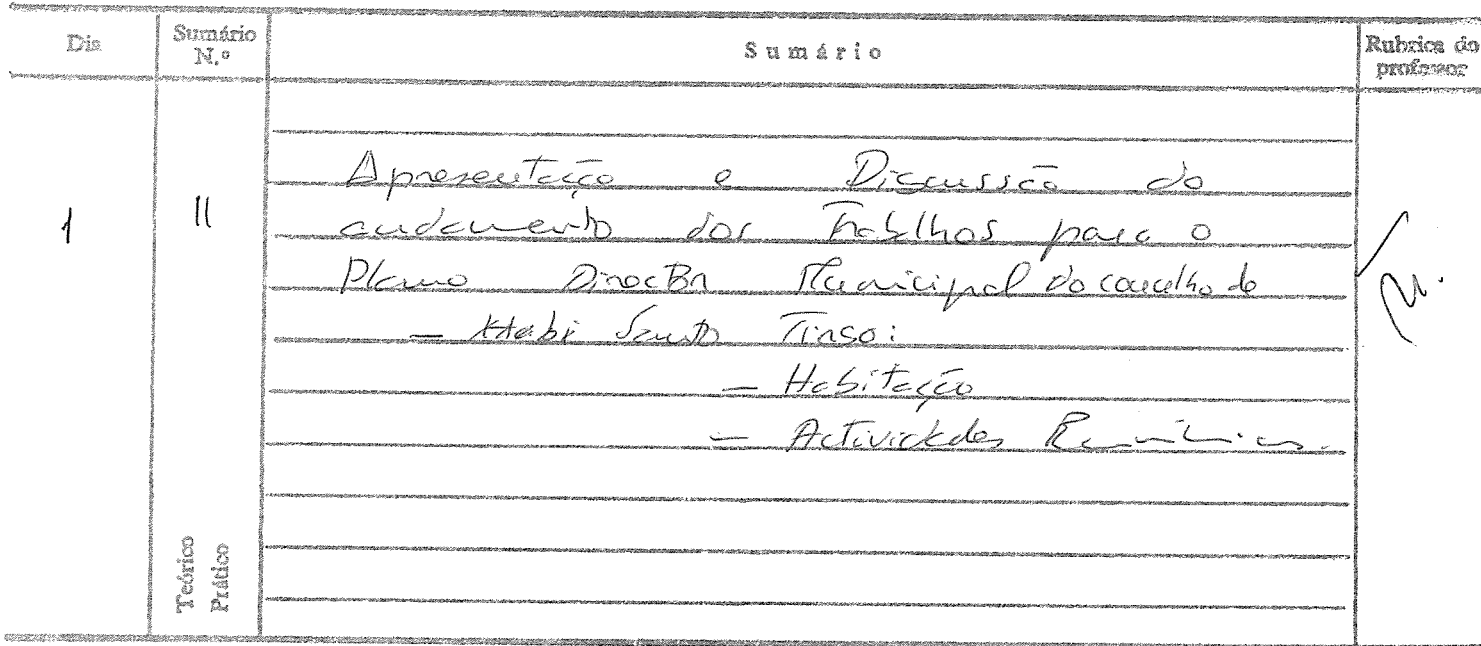 Dia
Sumário N.º
Sumário
Rubrica do professor
1
11
Apresentação e Discussão do
andamento dos Trabalhos para o
Plano Director Municipal do concelho de
— Santo Tirso:
— Habitação
— Actividades
Teórico
Prático